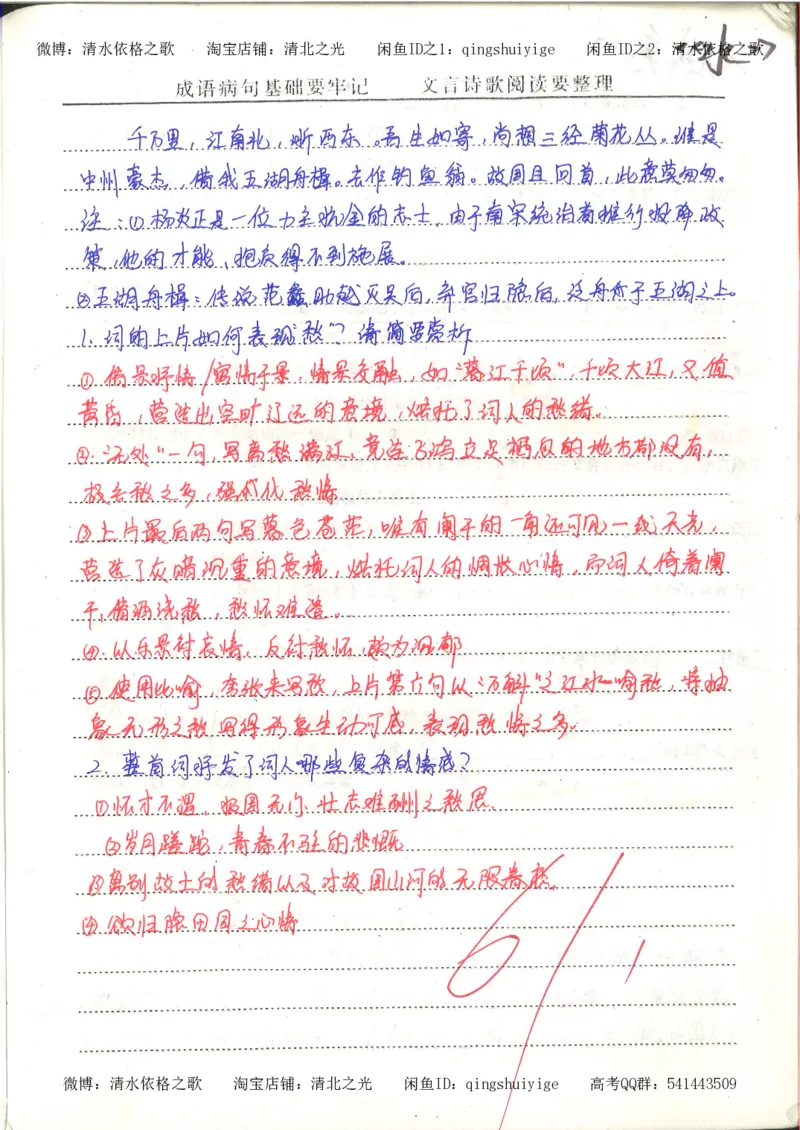 微博：清水依格之歌 淘宝店铺：清北之光 闲鱼ID之1：qingshuiyige 闲鱼ID之2：清水依格之歌
成语病句基础要牢记 文言诗歌阅读要整理
千万里，江南北，浙西东。吾生如寄，尚想三径菊花丛。谁是
中州豪杰，借我五湖舟楫。去作钓鱼翁。故国且回首，此意莫匆匆。
注：①杨炎正是一位力主抗金的志士，由于南宋统治者推行投降政
策，他的才能、抱负得不到施展。
②五湖舟楫：传说范蠡助越灭吴后，弃官归隐后，泛舟于五湖之上。
1.词的上片如何表现"愁"？请简要赏析
①借景抒情/寓情于景，情景交融，如"暮江千顷"，千顷大江，又值
黄昏，营造出空旷辽远的意境，烘托了词人的愁绪。
②."无处"一句，写离愁满江，竟连飞鸿立足栖息的地方都没有，
极言愁之多，强化愁情
③上片最后两句写暮色苍茫，唯有阑干的一角还可见一线天光，
营造了灰暗沉重的意境，烘托词人的惆怅心情，而词人倚着阑
干，借酒浇愁，愁怀难遣。
④.以乐景衬哀情，反衬愁怀，颇为沉郁
⑤使用比喻，夸张来写愁，上片第六句以"万斛"之江水喻愁，将抽
象无形之愁写得形象生动可感，表现愁情之多。
2.整首词抒发了词人哪些复杂的情感？
①怀才不遇，报国无门、壮志难酬之愁思、
②岁月蹉跎，青春不驻的悲慨
③离别故土的愁绪以及对故国山河的无限眷恋。
④欲归隐田园之心情
6/1
微博：清水依格之歌 淘宝店铺：清北之光 闲鱼ID：qingshuiyige 高考QQ群：541443509